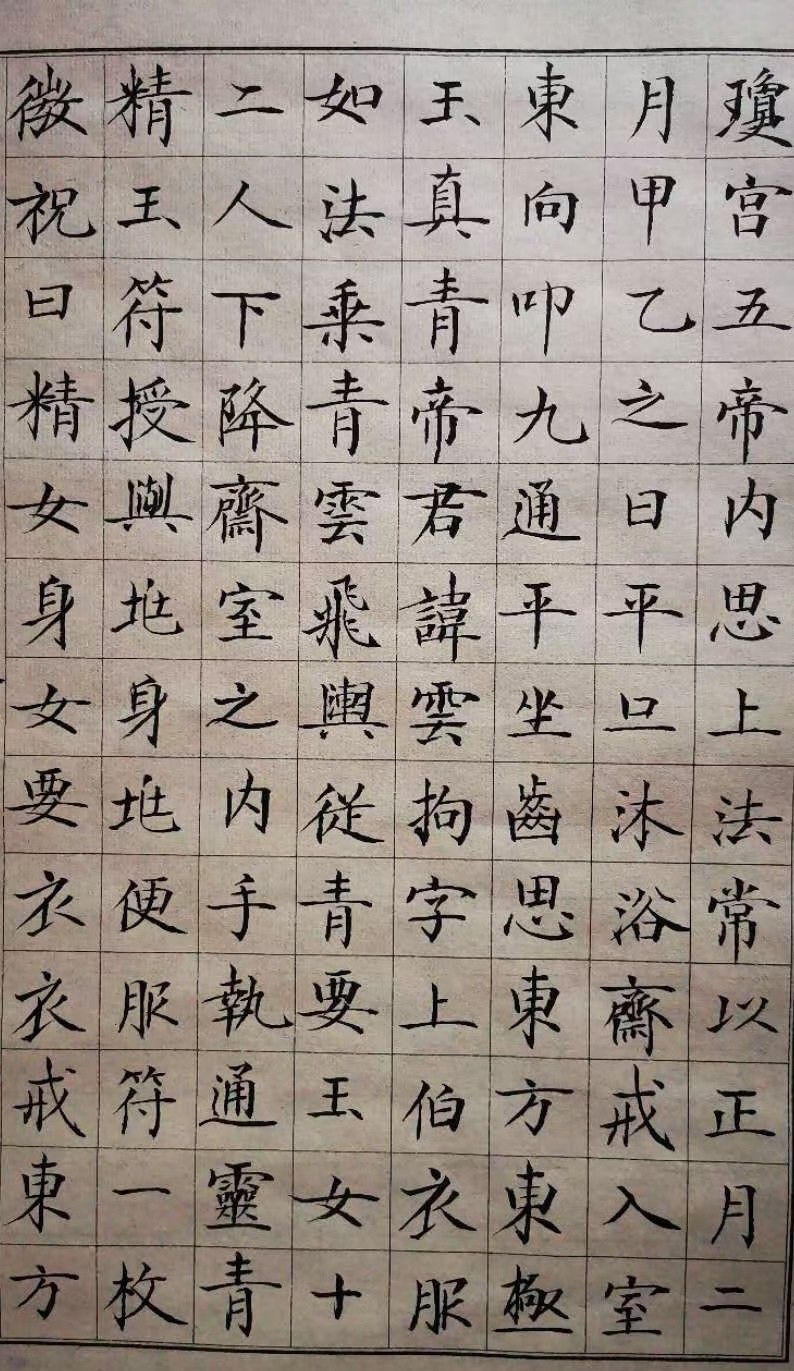 瓊宮五帝内思上法常以正月二
月甲乙之日平旦沐浴齋戒入室
東向叩九通平坐齒思東方東極
玉真青帝君諱雲拘字上伯衣服
如法乗青雲飛輿從青要玉女十
二人下降齋室之内手執通靈青
精玉符授與地身地便服符一枚
微祝曰精女身女要衣衣戒東方